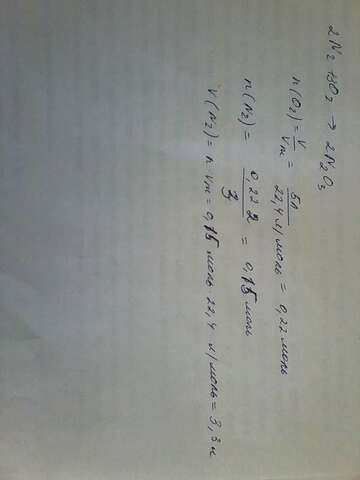 2N₂ + 3O₂ → 2N₂O₃
n(O₂) = V/Vm = 5л/22,4 л/моль = 0,22 моль
n(N₂) = 0,22 2/3 = 0,15 моль
V(N₂) = n Vm = 0,15 моль 22,4 л/моль = 3,3 л